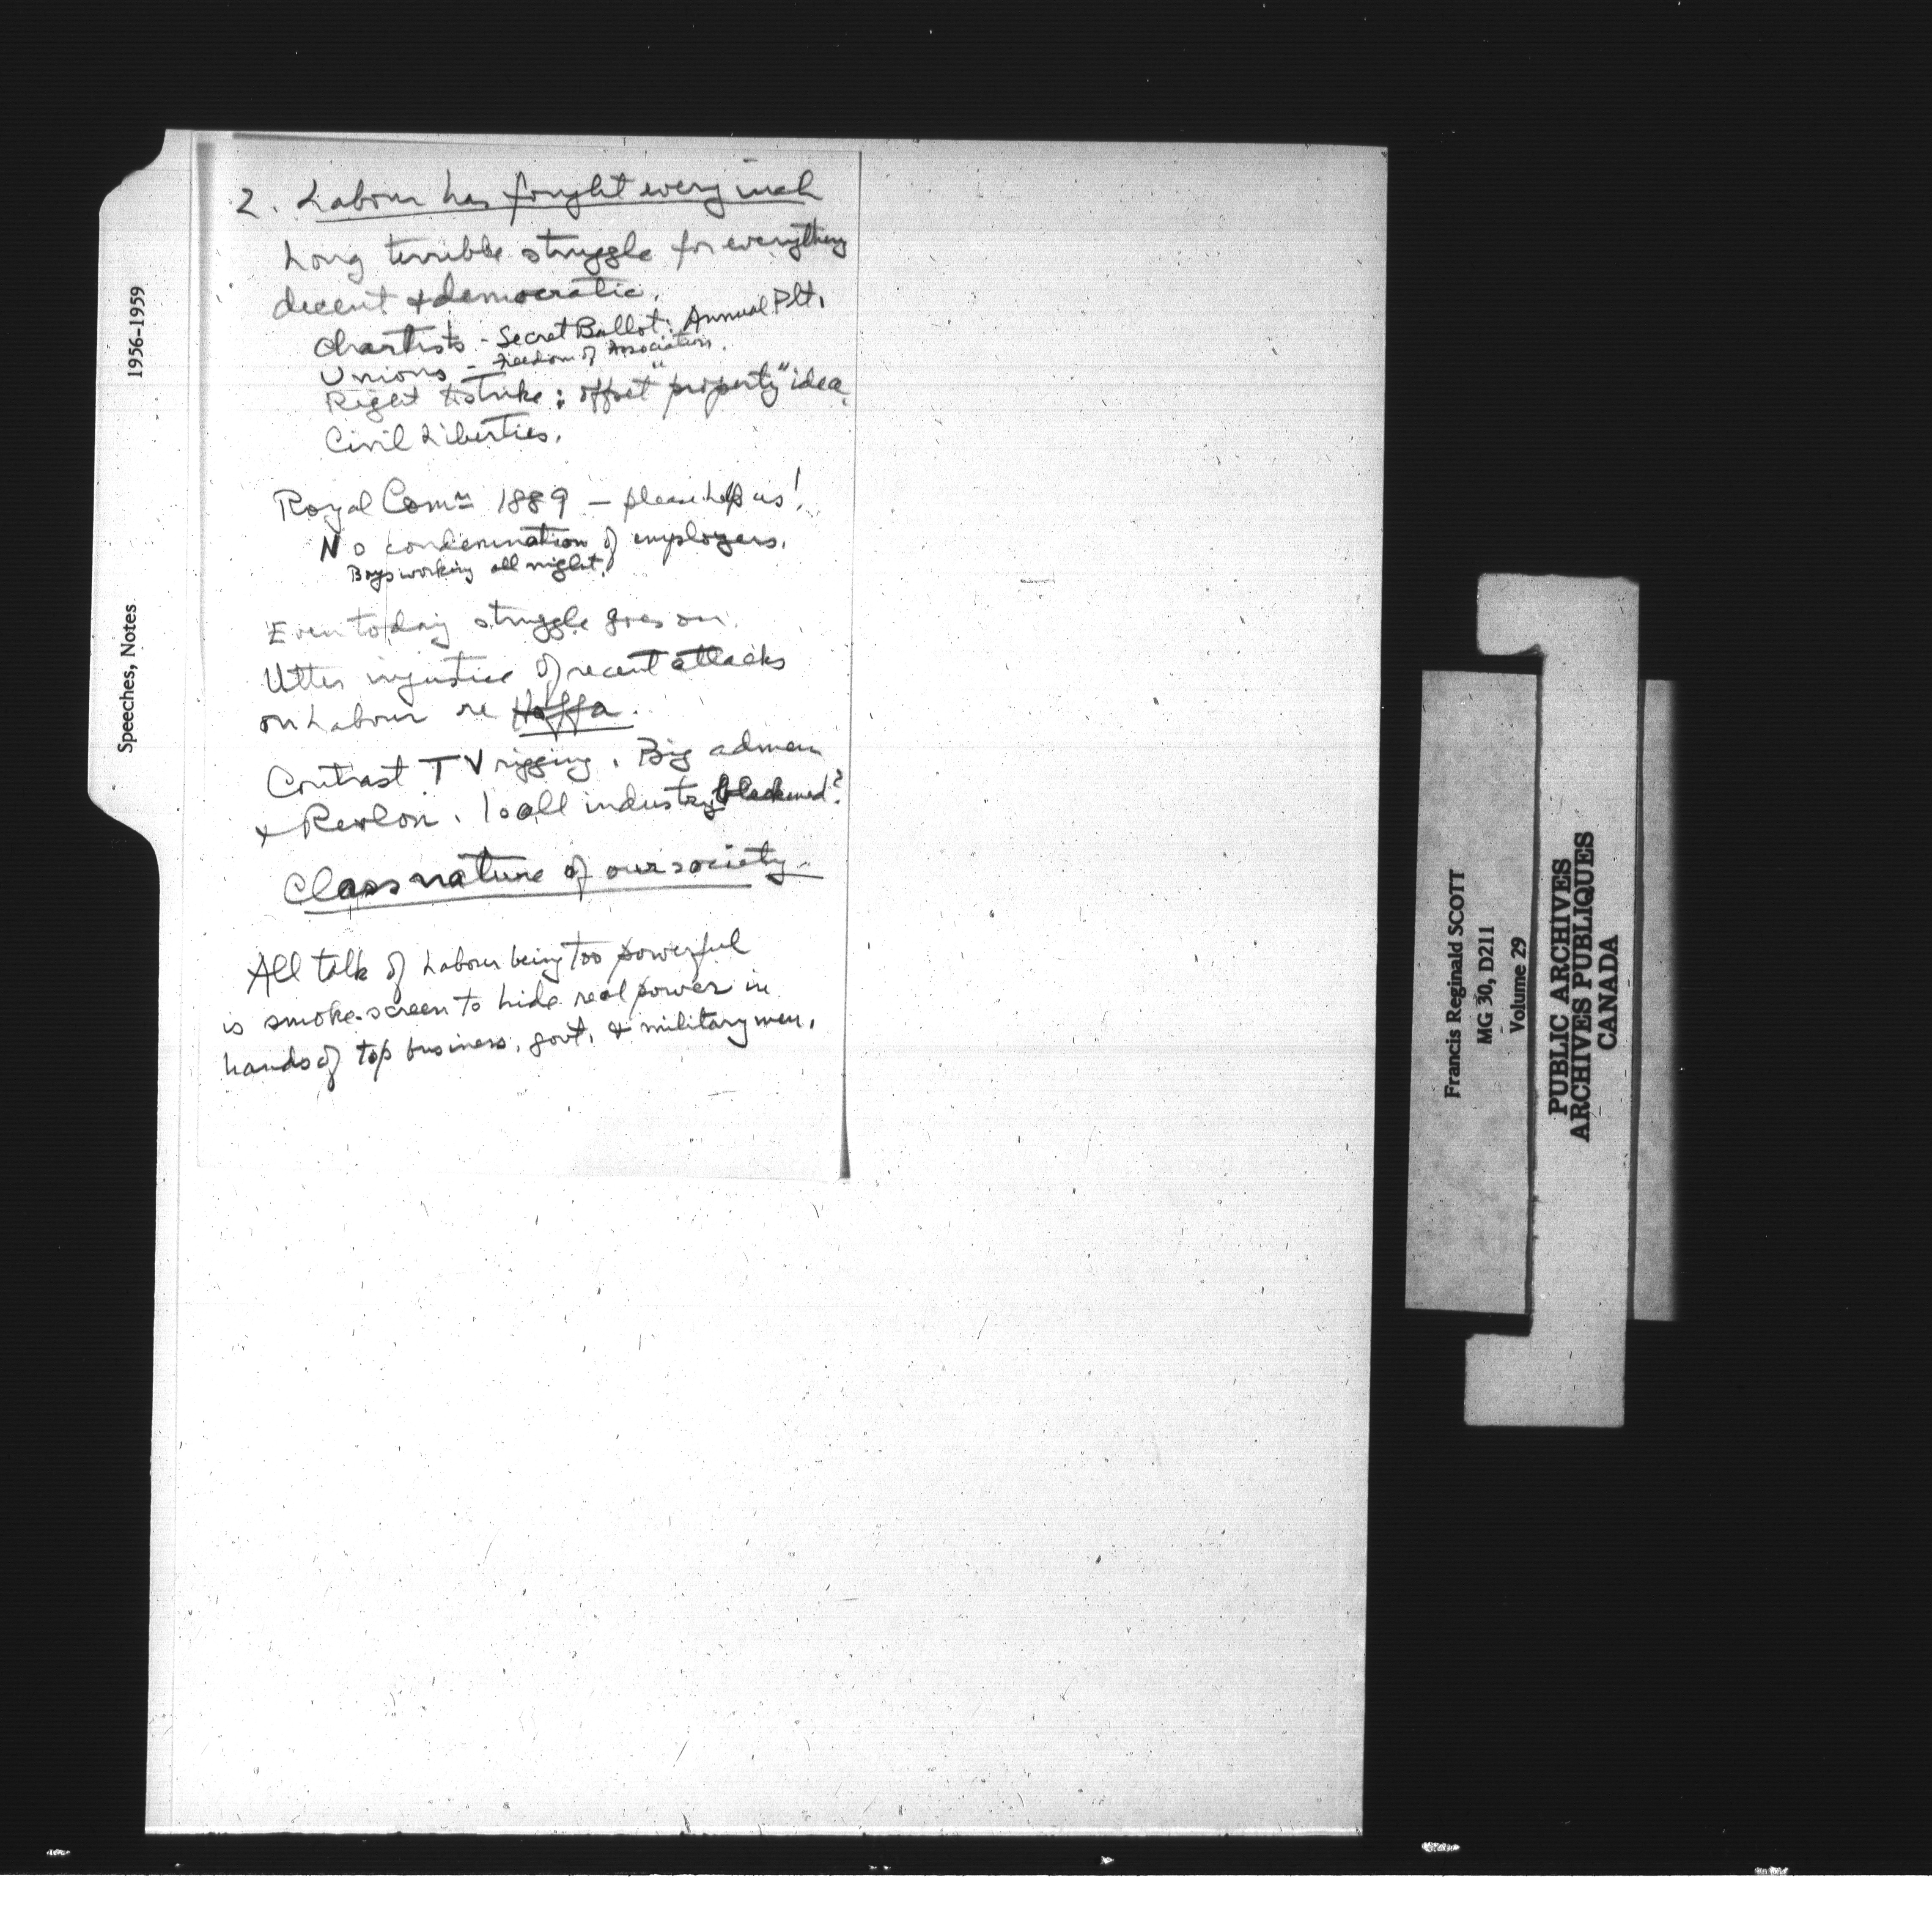 2. Labour has fought every inch
Long terrible struggle for everything
decent & democratic.
Chartists - Secret Ballot: Annual Plt.
Unions - Freedom of Association.
Right to strike: offset "property" idea.
Civil Liberties.
Royal Comn 1889 - please help us!
No condemnation of employers.
Boys working all night.
Even today struggle goes on.
Utter injustice of recent attacks
on Labour re Hoffa.
Contrast TV rigging. Big admen
& Revlon. Is all industry blackened?
Class nature of our society.
All talk of Labour being too powerful
is smoke-screen to hide real power in
hands of top business, govt, & military men.
Speeches, Notes 1956-1959
Francis Reginald SCOTT
MG 30, D211
Volume 29
PUBLIC ARCHIVES
ARCHIVES PUBLIQUES
CANADA